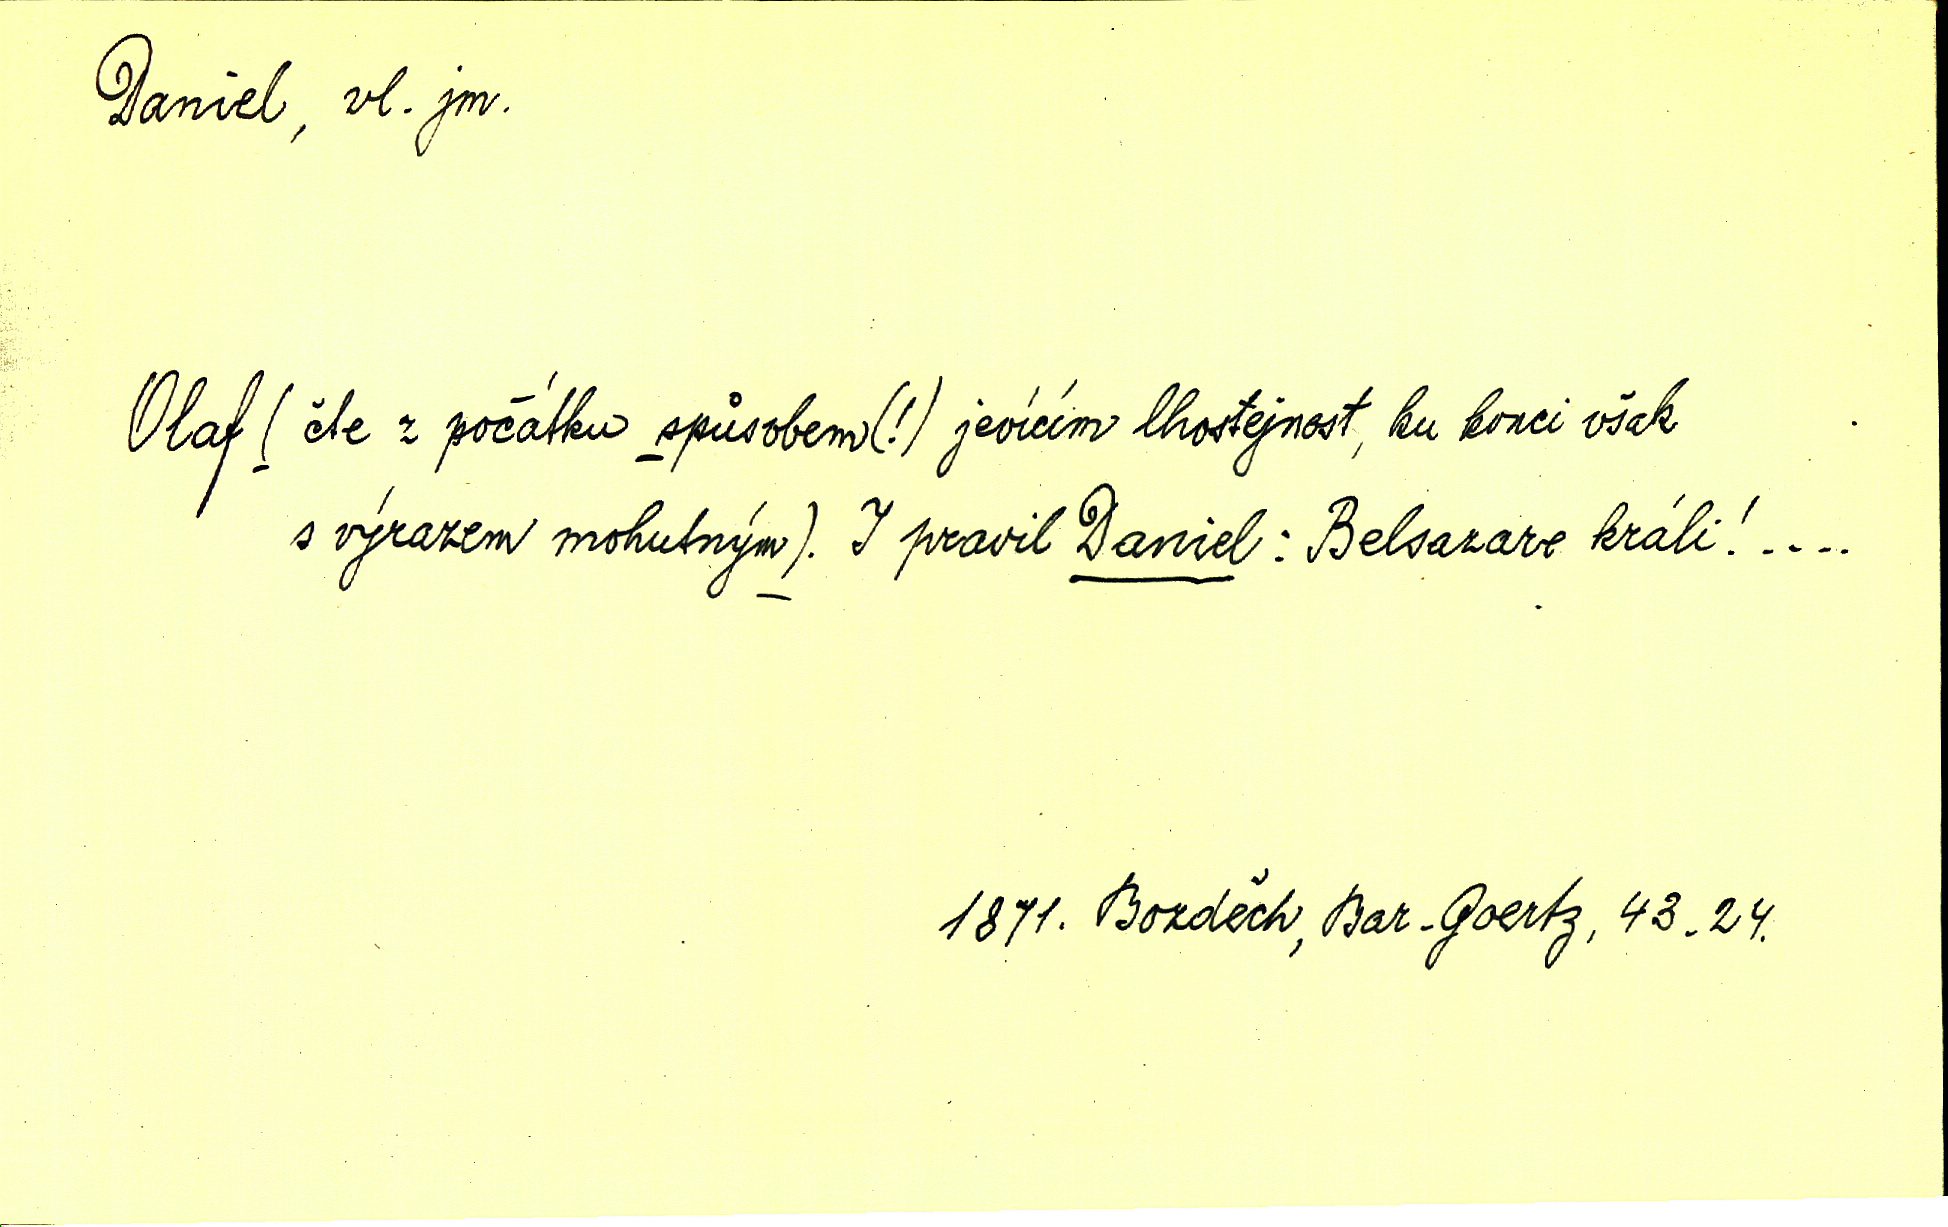 Daniel, vl. jm.
Olaf (čte z počátku spůsobem(!) jevícím lhostejnost, ku konci však
s výrazem mohutným). I pravil Daniel: Belsazare králi! ....
1871. Bozděch, Bar. Goertz, 43-24.